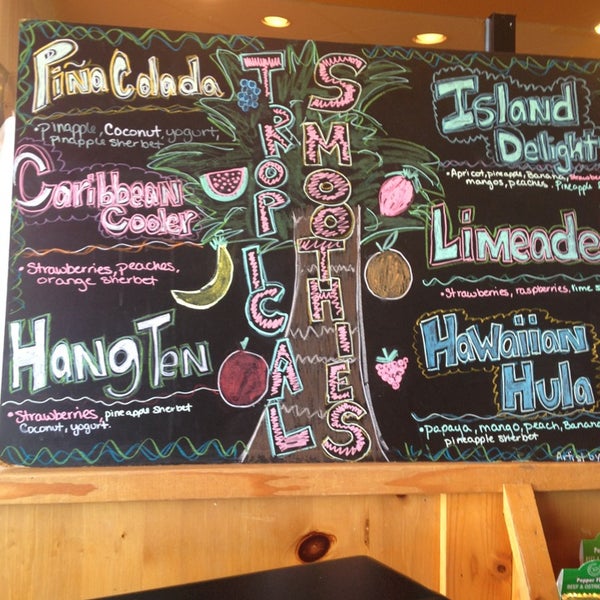 Piña Colada
• pinapple, Coconut, yogurt,
pinapple sherbet
Caribbean
Cooler
• Strawberries, peaches,
orange sherbet
Hang Ten
• Strawberries, pineapple sherbet
Coconut, yogurt.
TROPICAL
SMOOTHIES
Island
Delight
• Apricot, pineapple, Banana, strawberries
mangos, peaches. Pineapple
Limeade
• Strawberries, raspberries, lime
Hawaiian
Hula
• papaya, mango, peach, Banana
pineapple sherbet
Artist by
Pepper
BEEF &